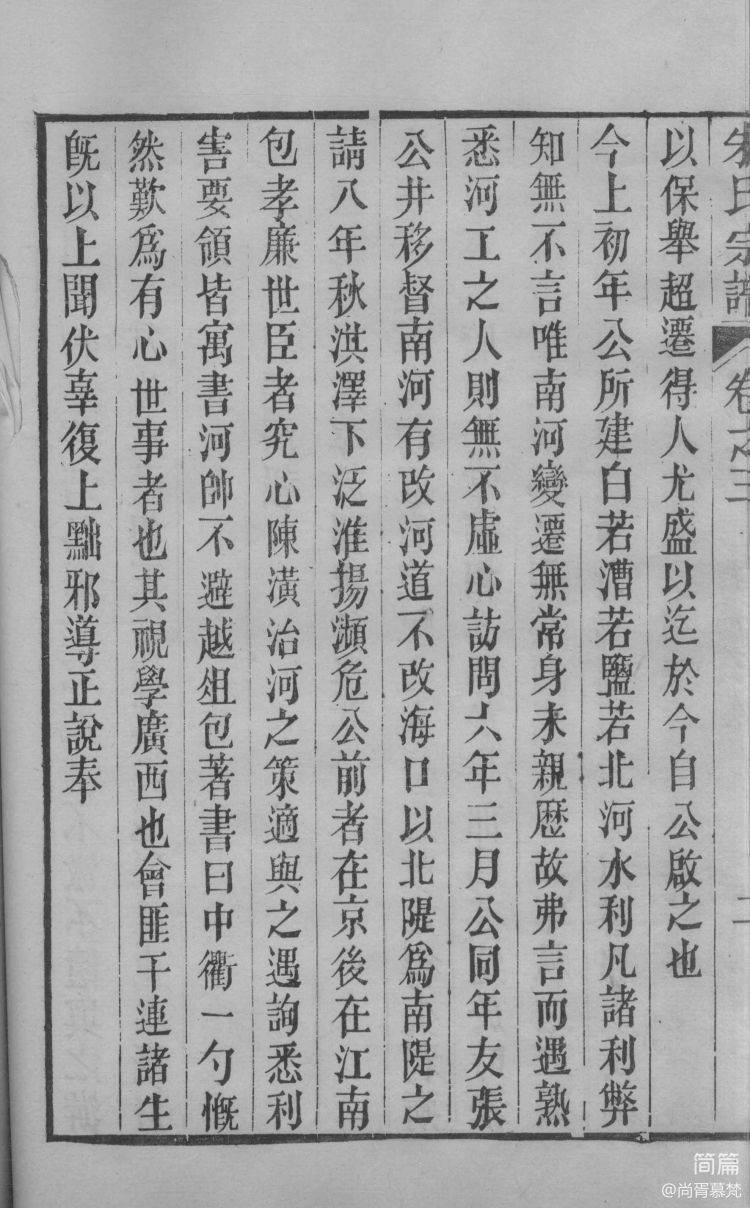 氏宗譜 卷之三 二
以保舉超遷得人尤盛以迄於今自公啟之也
今上初年公所建白若漕若鹽若北河水利凡諸利弊
知無不言唯南河變遷無常身未親歷故弗言而遇熟
悉河工之人則無不虛心訪問六年三月公同年友張
公井移督南河有改河道不改海口以北隄爲南隄之
請八年秋洪澤下泛淮揚瀕危公前者在京後在江南
包孝廉世臣者究心陳潢治河之策適與之遇詢悉利
害要領皆寓書河帥不避越俎包著書曰中衢一勺慨
然歎爲有心世事者也其視學廣西也會匪干連諸生
旣以上聞伏辜復上黜邪導正說奉
简篇
@尚胥慕梵